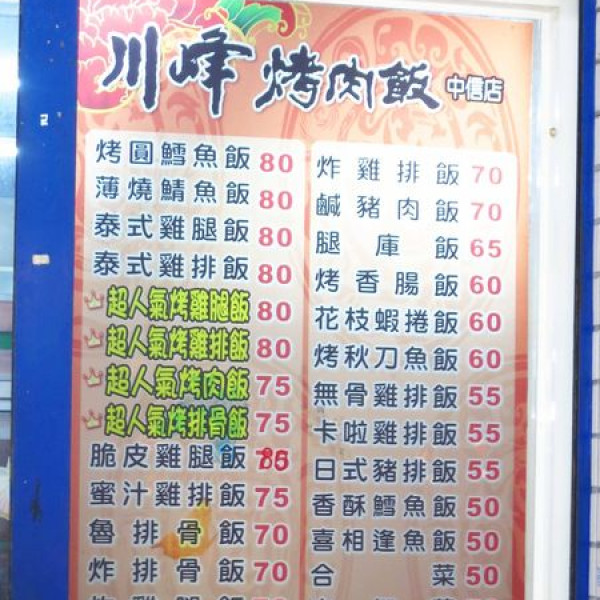 川峰 烤肉飯 中信店
烤圓鱈魚飯 80
薄燒鯖魚飯 80
泰式雞腿飯 80
泰式雞排飯 80
超人氣烤雞腿飯 80
超人氣烤雞排飯 80
超人氣烤肉飯 75
超人氣烤排骨飯 75
脆皮雞腿飯
蜜汁雞排飯 75
魯排骨飯 70
炸排骨飯 70
炸雞排飯 70
鹹豬肉飯 70
腿庫飯 65
烤香腸飯 60
花枝蝦捲飯 60
烤秋刀魚飯 60
無骨雞排飯 55
卡啦雞排飯 55
日式豬排飯 55
香酥鱈魚飯 50
喜相逢魚飯 50
合菜 50